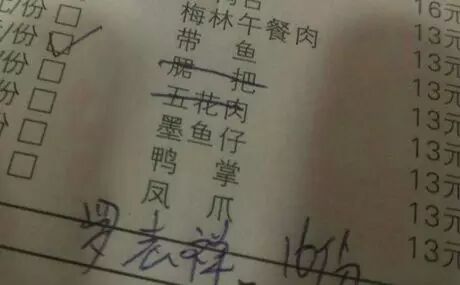 16元
元/份 □ 梅林午餐肉 13元
/份 □ 带鱼 13元
份 □ 肥把 13元
份 □ 五花肉 13元
份 □ 墨鱼仔 13元
□ 鸭掌 13元
凤爪 13元
13元
罗志祥 16份